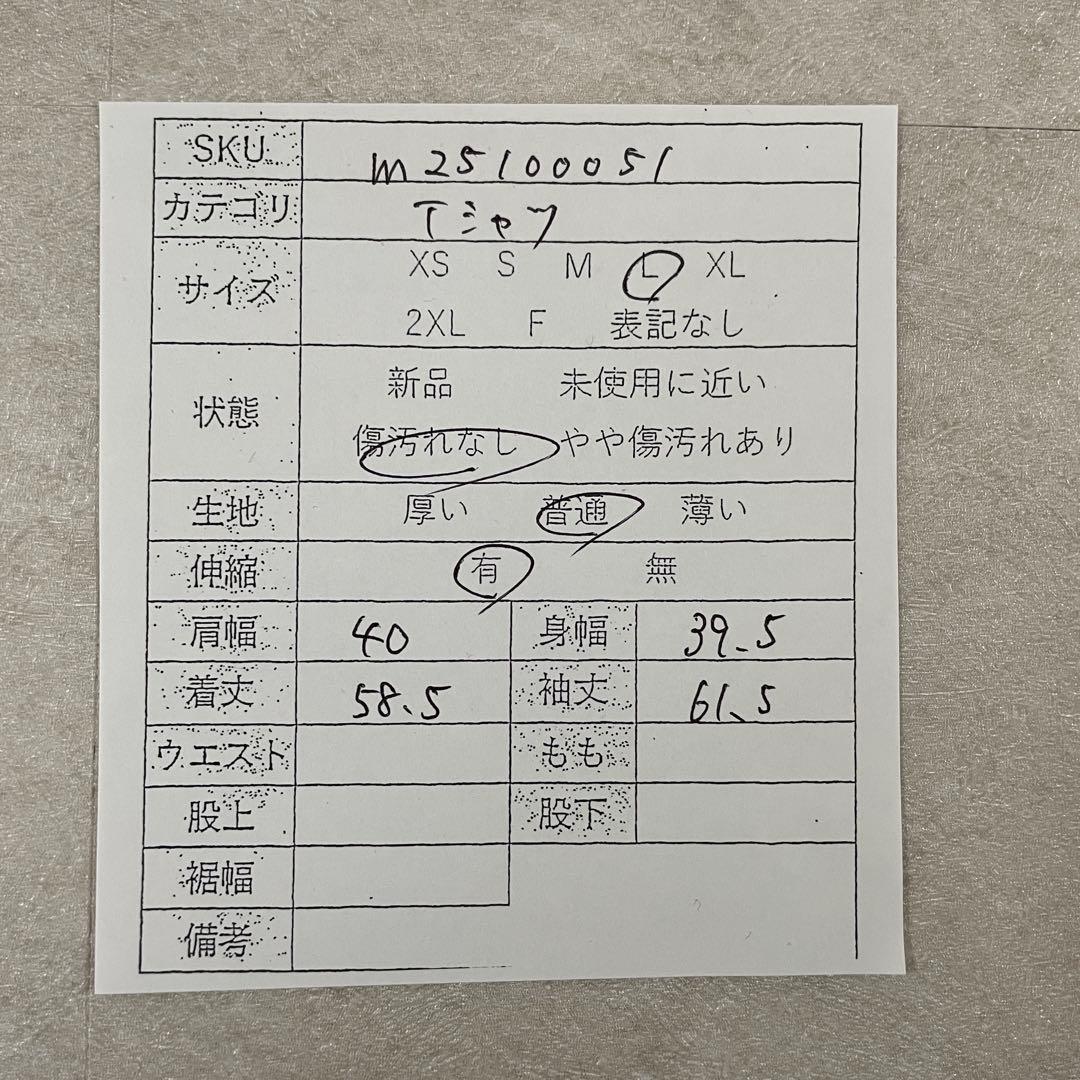 SKU m25100051
カテゴリ Tシャツ
サイズ XS S M L XL
2XL F 表記なし
状態 新品 未使用に近い
傷汚れなし やや傷汚れあり
生地 厚い 普通 薄い
伸縮 有 無
肩幅 40 身幅 39.5
着丈 58.5 袖丈 61.5
ウエスト もも
股上 股下
裾幅
備考